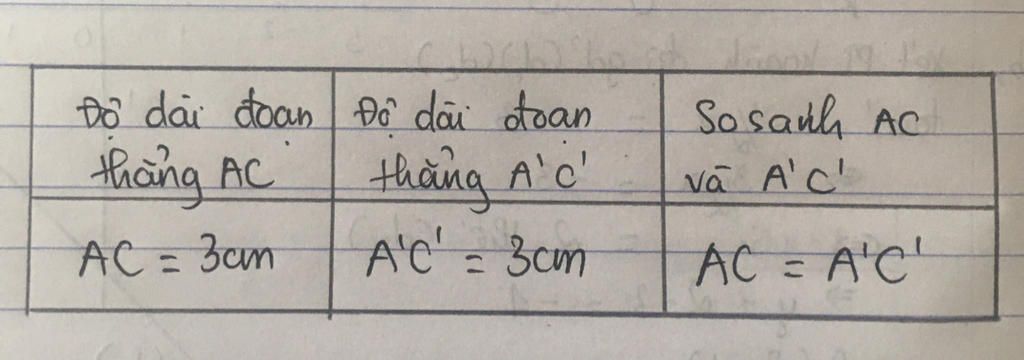 Độ dài đoạn
thẳng AC
Độ dài đoạn
thẳng A'C'
So sánh AC
và A'C'
AC = 3cm
A'C' = 3cm
AC = A'C'